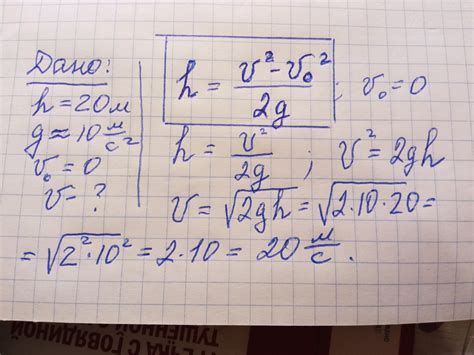 Дано:
h = 20 м
g ≈ 10 м/с²
v₀ = 0
v - ?
h = (v² - v₀²)/2g ; v₀ = 0
h = v²/2g ; v² = 2gh
v = √(2gh) = √(2·10·20) =
= √(2²·10²) = 2·10 = 20 м/с.
ГРЕЧКА С ГОВЯДИНОЙ
ТУШЕНОЙ